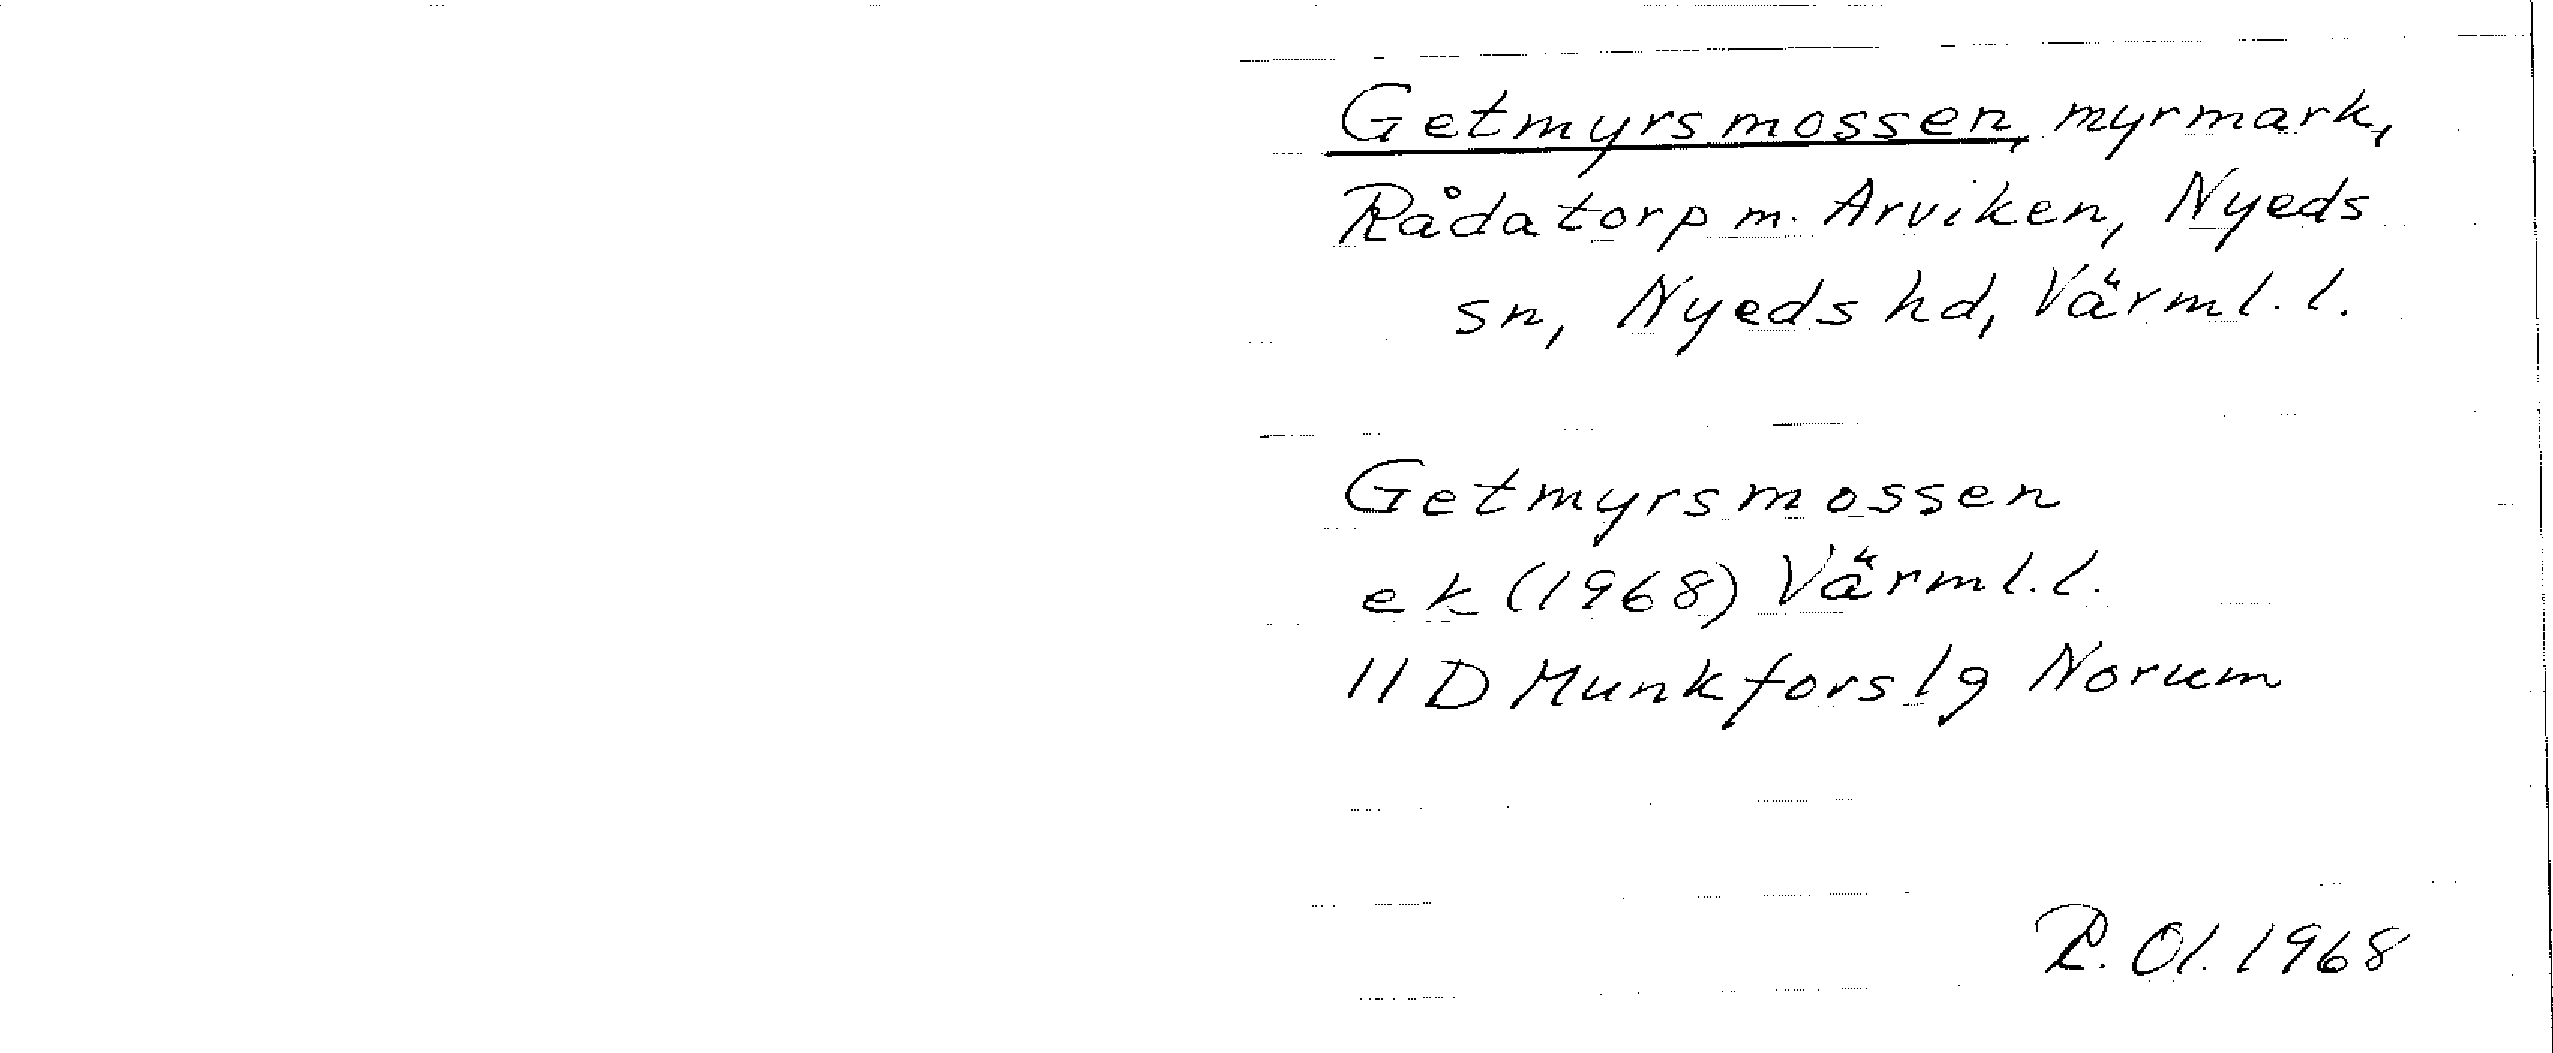 Getmyrsmossen, myrmark,
Rådatorp m. Arviken, Nyeds
sn, Nyeds hd, Värml. l.
Getmyrsmossen
ek (1968) Värml. l.
11 D Munkfors 1g Norum
R. Ol. 1968